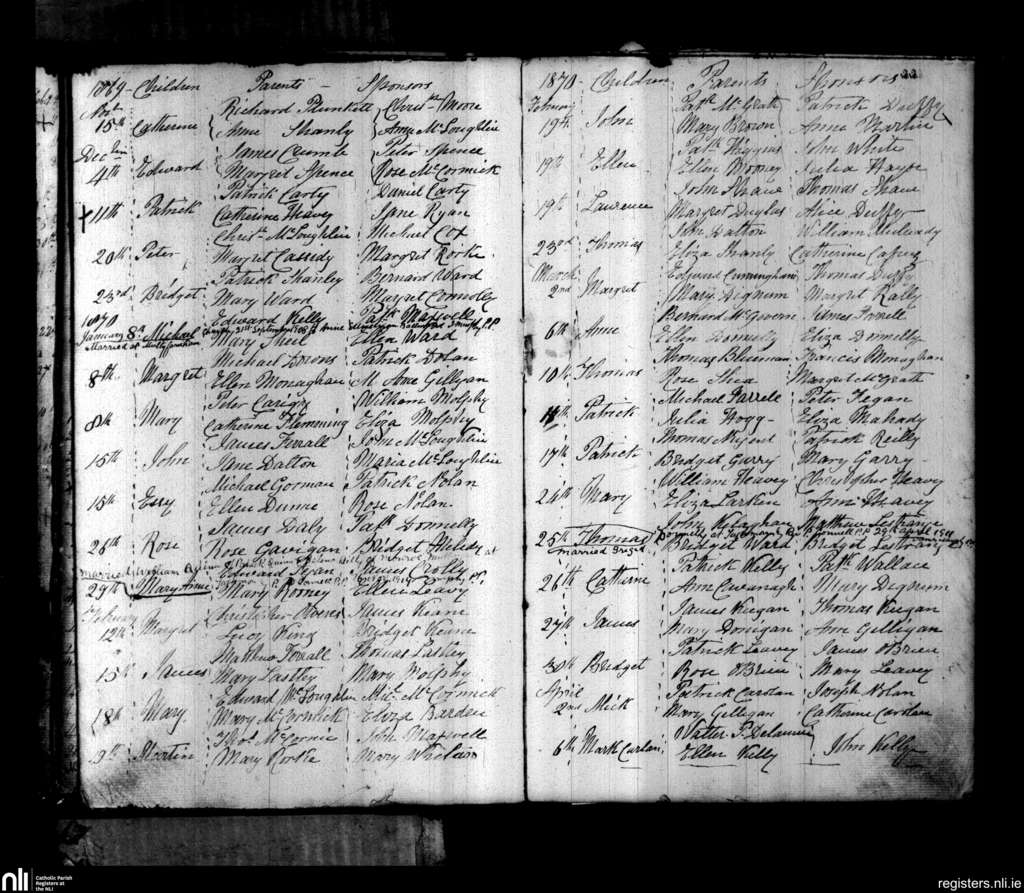 1869 Children Parents Sponsors
Nov Richard Plunkett Christ. Moore
15th Catherine Anne Shanly Anne McLoughlin
Dec James Crumb Peter Spence
4th Edward Margret Spence Rose McCormick
Patrick Carty Daniel Carty
11th Patrick Catherine Heavy Jane Ryan
Christ. McLoughlin Michael Cox
20th Peter Margret Cassidy Margret Rorke
Patrick Shanley Bernard Ward
23rd Bridget Mary Ward Margret Connolly
1870 Edward Kelly Patk Maxwell
January 8th Michael Mary Sheil Ellen Ward
Married at Mullingar
Michael Downs Patrick Dolan
8th Margret Ellen Monaghan M. Ane Gillyan
Peter William Molphy
8th Mary Catherine Flemming Eliza Molphy
James Farrall John McLoughlin
15th John Jane Dalton Maria McLoughlin
Michael Gorman Patrick Nolan
15th Ellen Dunne Rose Nolan
James Daly Patk Donnelly
26th Rose Rose Gavigan Bridget
married William
Edward James Crotty
29th Mary Anne Mary Rooney Ellen Leavy
February Christopher James Keane
12th Margret Lucy King Bridget Keane
Matthew Farrall Thomas Lastley
15th James Mary Lastley Mary Molphy
Edward McLoughlin Mic. McCormick
18th Mary Mary McCormick Eliza Barden
Thos John Maxwell
19th Martin Mary Rorke Mary Whelan
1870 Children Parents Sponsors 22
February Patk McGrath Patrick Duffy
19th John Mary Brown Anne Martin
Patk Higgins John White
19th Ellen Ellen Rooney Julia Hayse
John Shaw Thomas Shaw
19th Laurence Margret Duglas Alice Duffy
John Dalton William
23rd Thomas Eliza Shanly Catherine
March Edward Cunningham Thomas Duffy
2nd Margret Mary Dignum Margret Rally
Bernard McGovern James Farrell
6th Anne Ellen Donnelly Eliza Donnelly
Thomas Francis Monaghan
10th Thomas Rose Shea Margret McGrath
Michael Farrell Peter Fegan
11th Patrick Julia Hogg Eliza Mahady
Thomas Nugent Patrick Reilly
17th Patrick Bridget Garry Mary Garry
William Heavey Christopher Heavey
24th Mary Eliza Larkin Ann Heavey
John Matthew Lestrange
25th Thomas Bridget Ward Bridget Lestrange
married
Patrick Kelly Patk Wallace
26th Catherine Ann Cavanagh Mary Dignum
James Keegan Thomas Keegan
27th James Mary Donigan Ann Gilligan
Patrick Leavey James O'Brien
30th Bridget Rose O'Brien Mary Leavey
April Patrick Carolan Joseph Nolan
2nd Mick Mary Gilligan Catherine Carolan
Walter S. Delamere
6th Mark Curlin Ellen Kelly John Kelly
nli Catholic Parish
Registers at
the NLI
registers.nli.ie